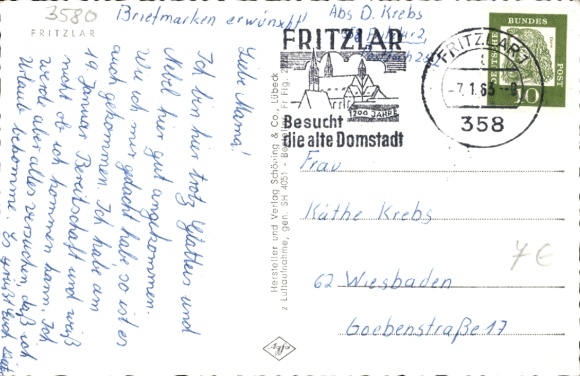 3580
Briefmarken erwünscht!
Abs D. Krebs
FRITZLAR
FRITZLAR
1200 JAHRE
Besucht
die alte Domstadt
FRITZLAR 1
-7.1.65--8
358
DEUTSCHE BUNDESPOST
10
Liebe Mama!
Ich bin hier trotz Glatteis und
Nebel hier gut angekommen.
Wie ich mir gedacht hab, so ist es
auch gekommen. Ich habe am
19 Januar Bereitschaft und weiß
nicht ob ich kommen kann. Ich
werde aber alles versuchen, daß ich
Urlaub bekomme. Es grüßt Euch
Hersteller und Verlag Schöning & Co., Lübeck
Luftaufnahme, gen. SH 4051 - Fr Flg.
Frau
Käthe Krebs
62 Wiesbaden
Goebenstraße 17
7€